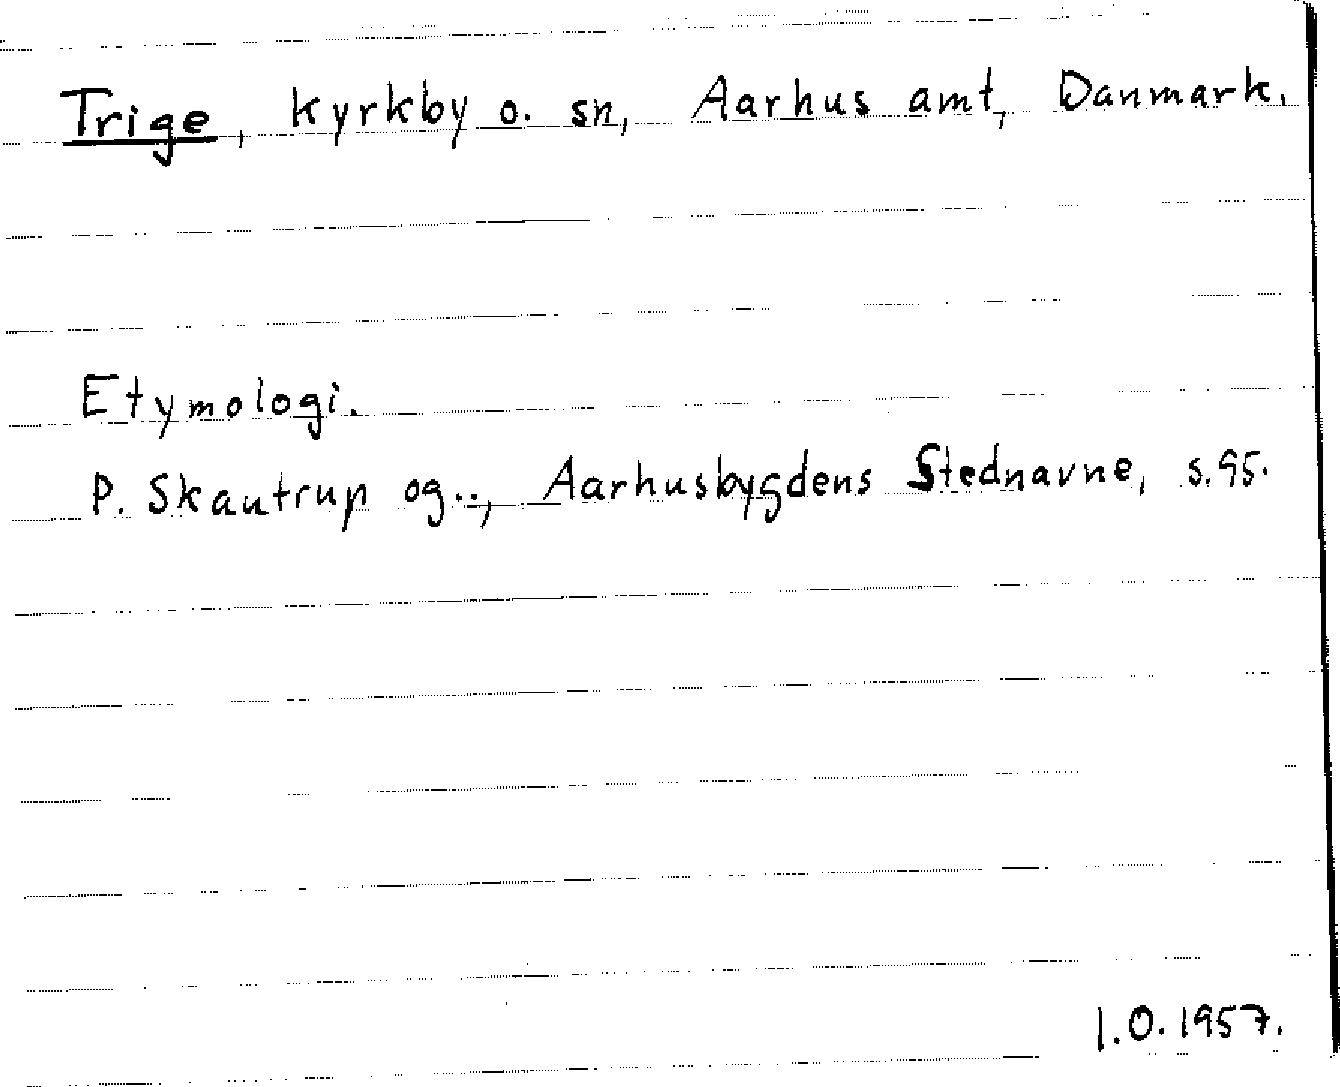 Trige, kyrkby o. sn, Aarhus amt, Danmark.
Etymologi.
P. Skautrup og.., Aarhusbygdens Stednavne, s. 95.
I.O. 1957.